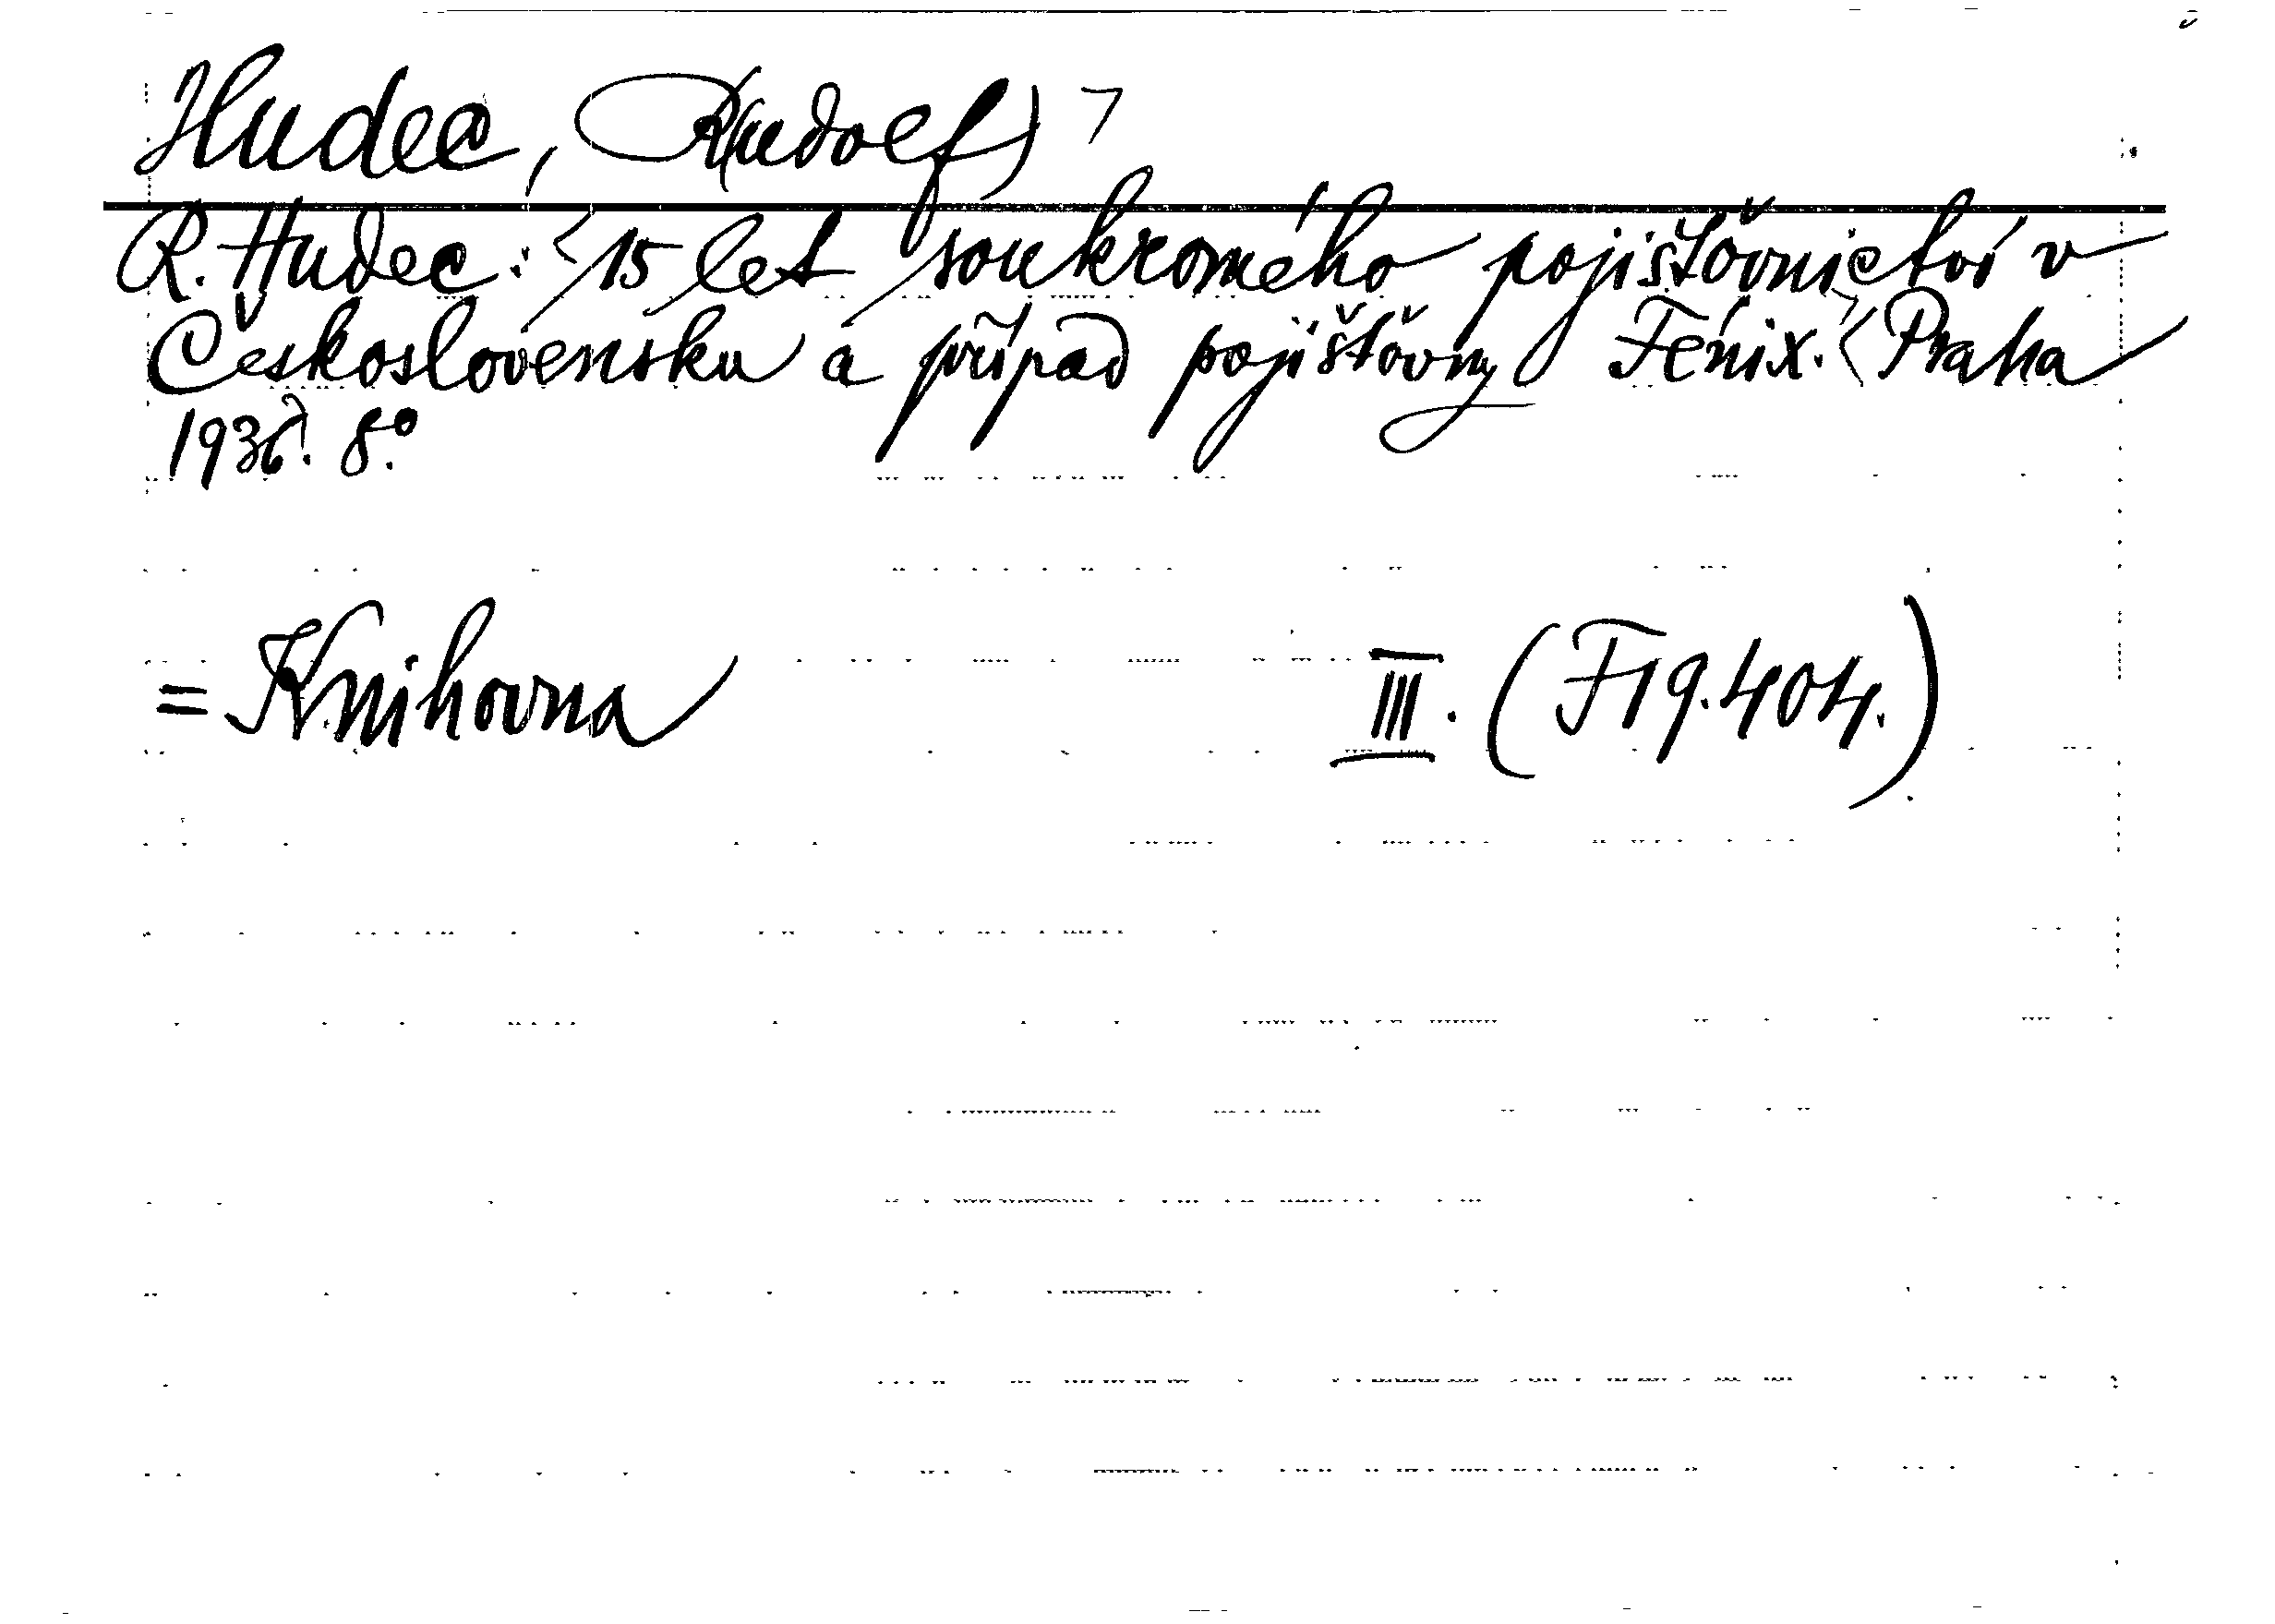 Hudec, (Rudolf)
R. Hudec: 15 let soukromého pojišťovnictví v
Československu a případ pojišťovny Fénix. Praha
1936. 8°.
= Knihovna III. (F19.404.)